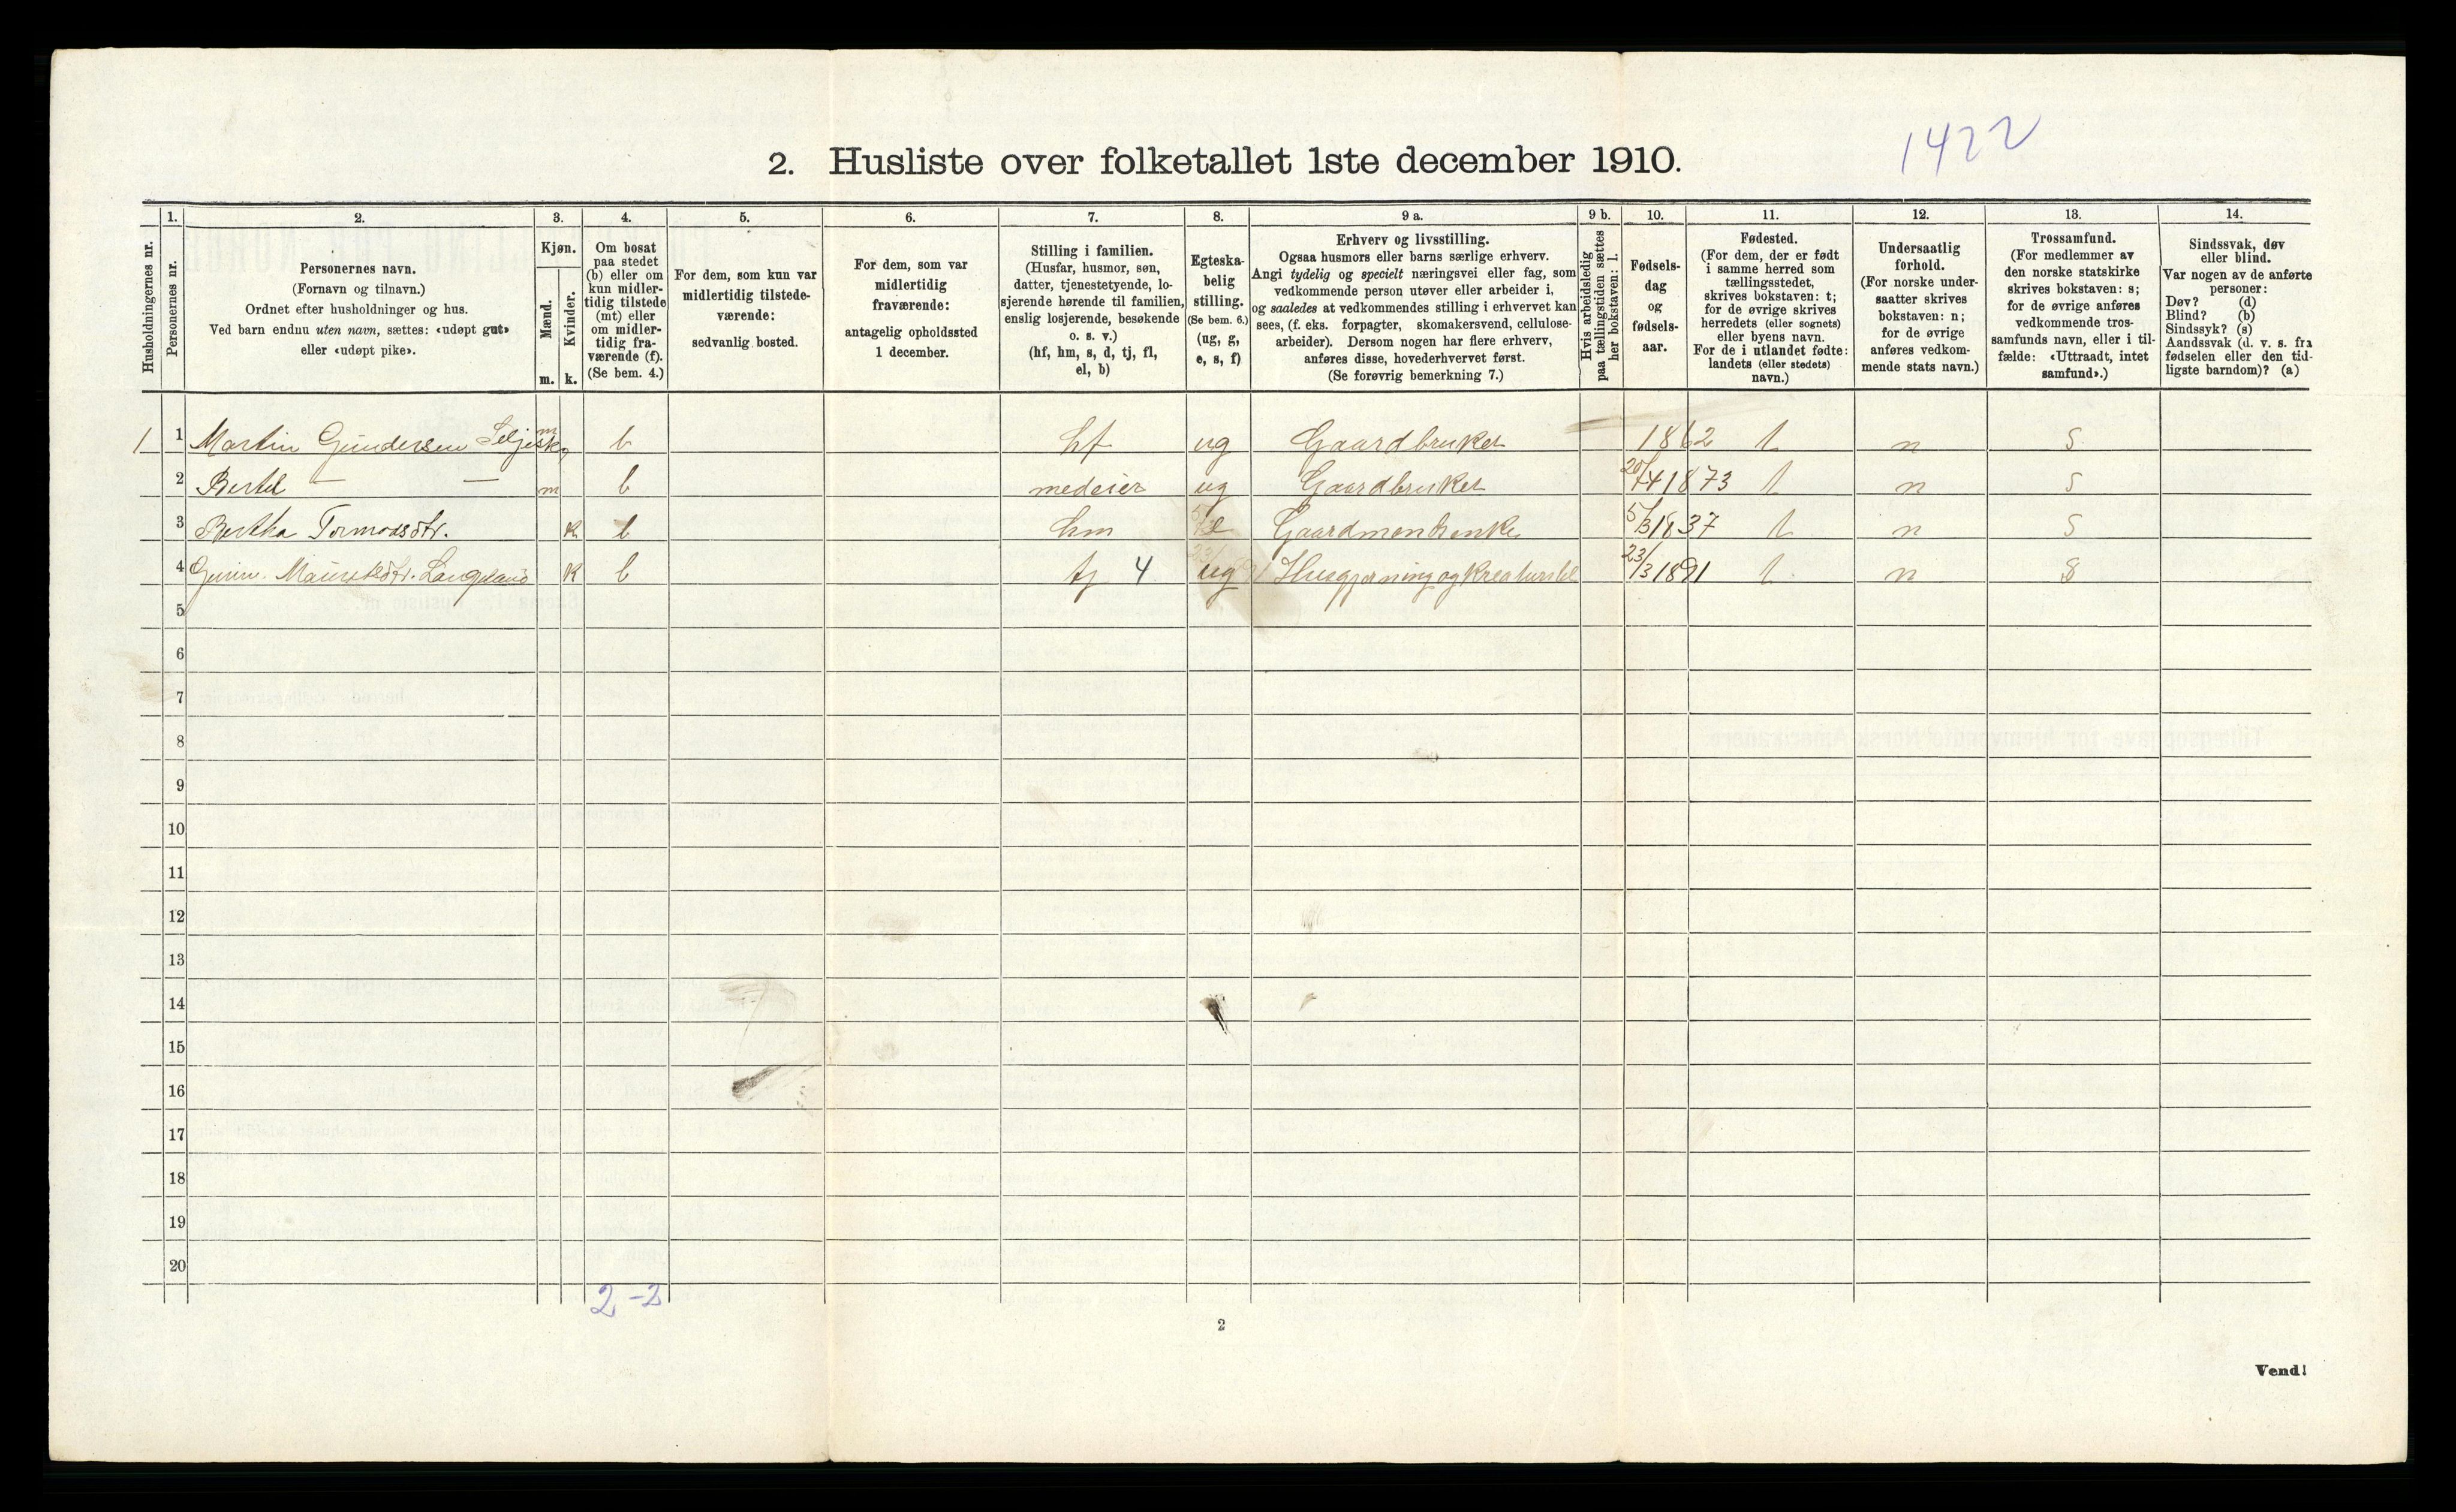 1422
2. Husliste over folketallet 1ste december 1910.
Husholdningernes nr.
1.
Personernes nr.
2.
Personernes navn.
(Fornavn og tilnavn.)
Ordnet efter husholdninger og hus.
Ved barn endnu uten navn, sættes: «udøpt gut»
eller «udøpt pike».
3.
Kjøn.
Mænd.
Kvinder.
m. k.
4.
Om bosat
paa stedet
(b) eller om
kun midler-
tidig tilstede
(mt) eller
om midler-
tidig fra-
værende (f).
(Se bem. 4.)
5.
For dem, som kun var
midlertidig tilstede-
værende:
sedvanlig bosted.
6.
For dem, som var
midlertidig
fraværende:
antagelig opholdssted
1 december.
7.
Stilling i familien.
(Husfar, husmor, søn,
datter, tjenestetyende, lo-
sjerende hørende til familien,
enslig losjerende, besøkende
o. s. v.)
(hf, hm, s, d, tj, fl,
el, b)
8.
Egteska-
belig
stilling.
(Se bem. 6.)
(ug, g,
e, s, f)
9 a.
Erhverv og livsstilling.
Ogsaa husmors eller barns særlige erhverv.
Angi tydelig og specielt næringsvei eller fag, som
vedkommende person utøver eller arbeider i,
og saaledes at vedkommendes stilling i erhvervet kan
sees, (f. eks. forpagter, skomakersvend, cellulose-
arbeider). Dersom nogen har flere erhverv,
anføres disse, hovederhvervet først.
(Se forøvrig bemerkning 7.)
9 b.
Hvis arbeidsledig
paa tællingstiden sættes
her bokstaven: l.
10.
Fødsels-
dag
og
fødsels-
aar.
11.
Fødested.
(For dem, der er født
i samme herred som
tællingsstedet,
skrives bokstaven: t;
for de øvrige skrives
herredets (eller sognets)
eller byens navn.
For de i utlandet fødte:
landets (eller stedets)
navn.)
12.
Undersaatlig
forhold.
(For norske under-
saatter skrives
bokstaven: n;
for de øvrige
anføres vedkom-
mende stats navn.)
13.
Trossamfund.
(For medlemmer av
den norske statskirke
skrives bokstaven: s;
for de øvrige anføres
vedkommende tros-
samfunds navn, eller i til-
fælde: «Uttraadt, intet
samfund».)
14.
Sindssvak, døv
eller blind.
Var nogen av de anførte
personer:
Døv? (d)
Blind? (b)
Sindssyk? (s)
Aandssvak (d. v. s. fra
fødselen eller den tid-
ligste barndom)? (a)
1 1 Martin Gundersen m b hf ug Gaardbruker 1862 t n s
2 Bertel — — m b medeier ug Gaardbruker 20/4 1873 t n s
3 Bertha Tormodsdtr. k b hm e 5/3 1837 t n s
4 Langeland k b tj 4 ug Husgjerning og Kreaturstel 23/3 1891 t n s
5
6
7
8
9
10
11
12
13
14
15
16
17
18
19
20
2-2
2
Vend!